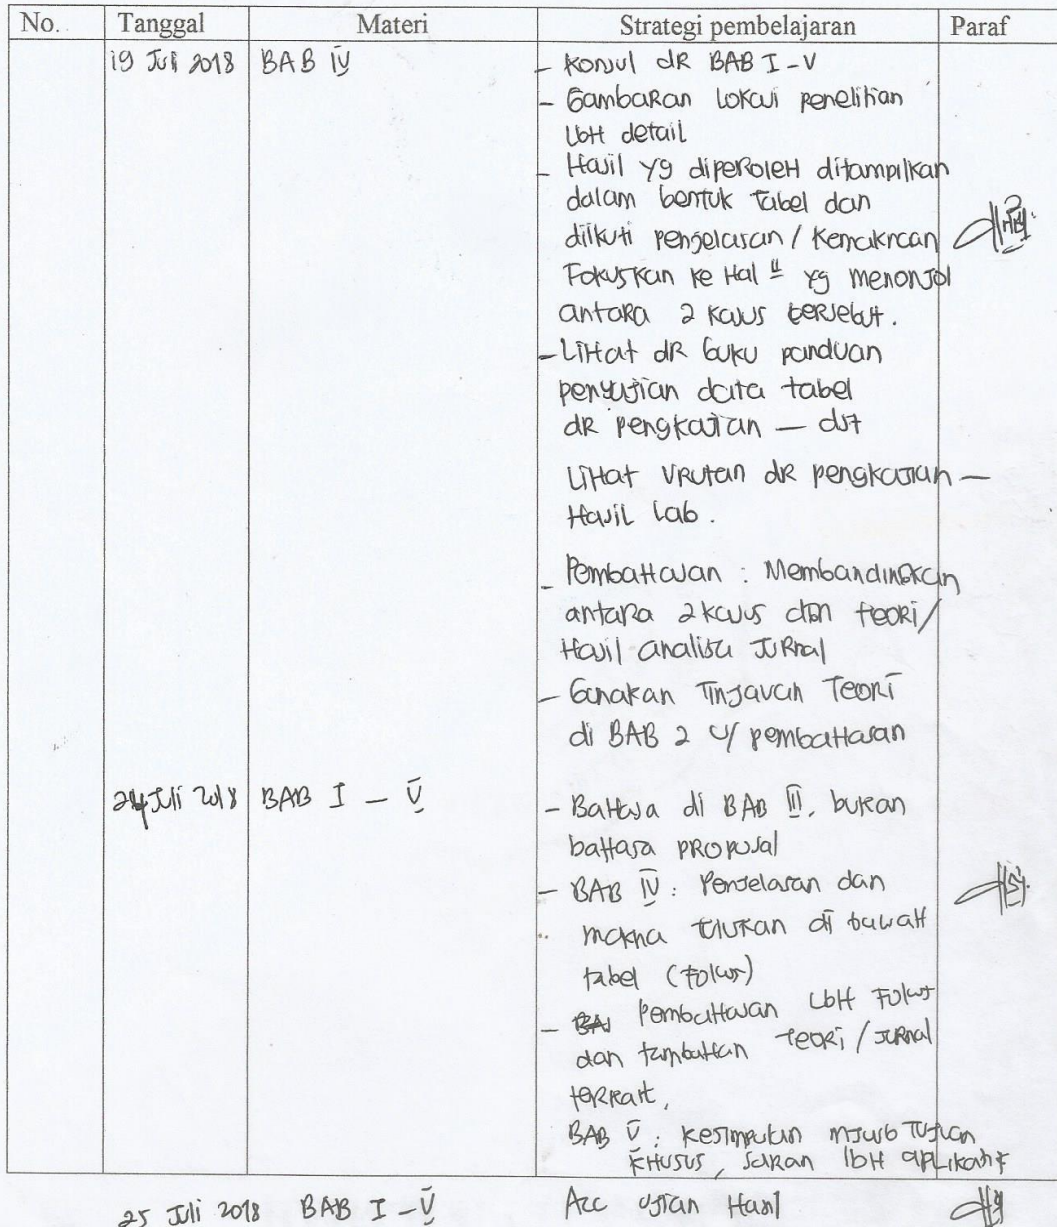 No. Tanggal Materi Strategi pembelajaran Paraf
19 Juli 2018 BAB IV - Konsul dR BAB I - V
- Gambaran lokasi penelitian
lbH detail
- Hasil yg diperoleH ditampilkan
dalam bentuk tabel dan
diikuti penjelasan / Kemaknaan
Fokuskan ke Hal " yg menonjol
antara 2 kasus tersebut.
- LiHat dR buku panduan
penyajian data tabel
dR pengkajian — dst
LiHat Urutan dR pengkajian —
Hasil Lab.
- PembaHasan : Membandingkan
antara 2 kasus dgn teori /
Hasil analisa JuRnal
- Gunakan Tinjauan Teori
di BAB 2 u/ pembaHasan
24 Juli 2018 BAB I - V - BaHasa di BAB III, bukan
baHasa pRoposal
- BAB IV : Penjelasan dan
makna di bawaH
tabel (Fokus)
- PembaHasan LbH Fokus
dan tambaHan Teori / JuRnal
terkait,
BAB V : Kesimpulan mjwb Tujuan
KHusus, saRan lbH aplikatif
25 Juli 2018 BAB I - V Acc Ujian Hasil